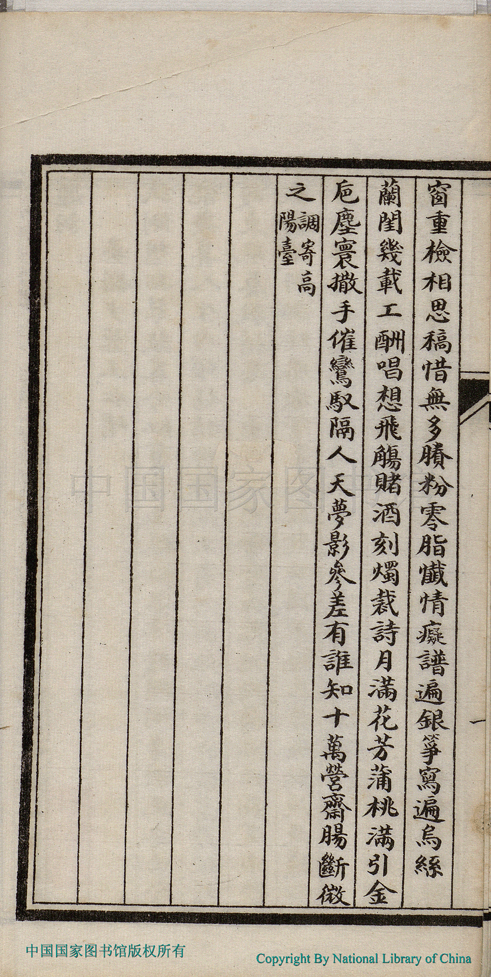 窗重檢相思稿惜無多賸粉零脂懺情癡譜遍銀箏寫遍烏絲
蘭閨幾載工酬唱想飛觴賭酒刻燭裁詩月滿花芳蒲桃滿引金
巵塵寰撒手催鸞馭隔人天夢影參差有誰知十萬營齋腸斷微
之調寄高
陽臺
中国国家图书馆
中国国家图书馆版权所有
Copyright By National Library of China